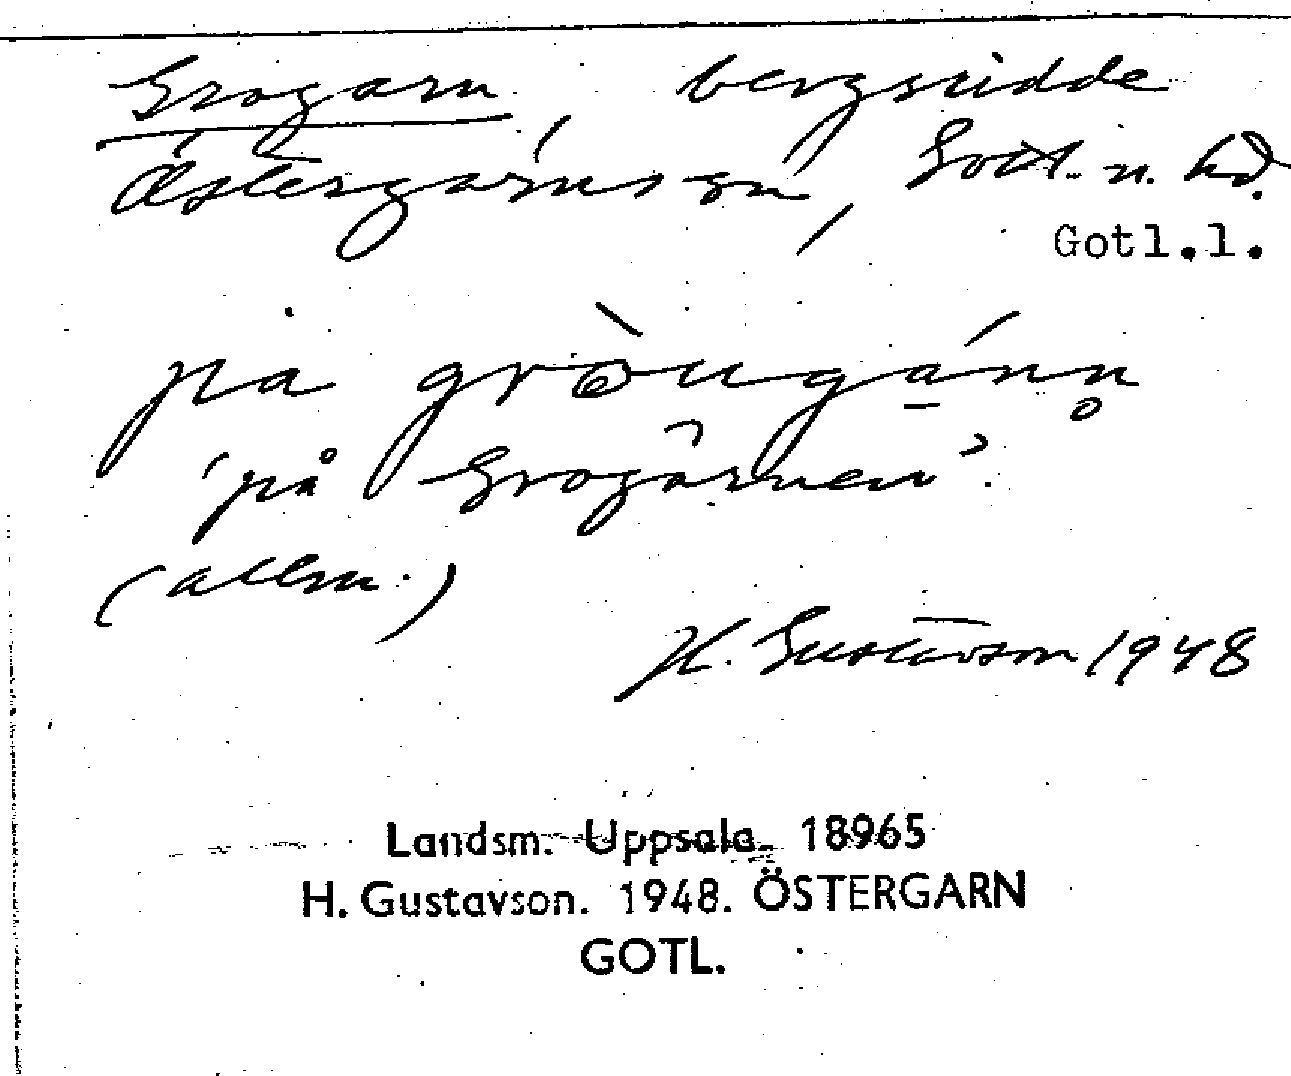 Grogarn, bergsudde
Östergarns sn, Gotl. n. hd.
Gotl.l.
pa gròugánn̥
'på Grogarnen'.
(allm.)
H. Gustavson 1948
Landsm. Uppsala. 18965
H. Gustavson. 1948. ÖSTERGARN
GOTL.